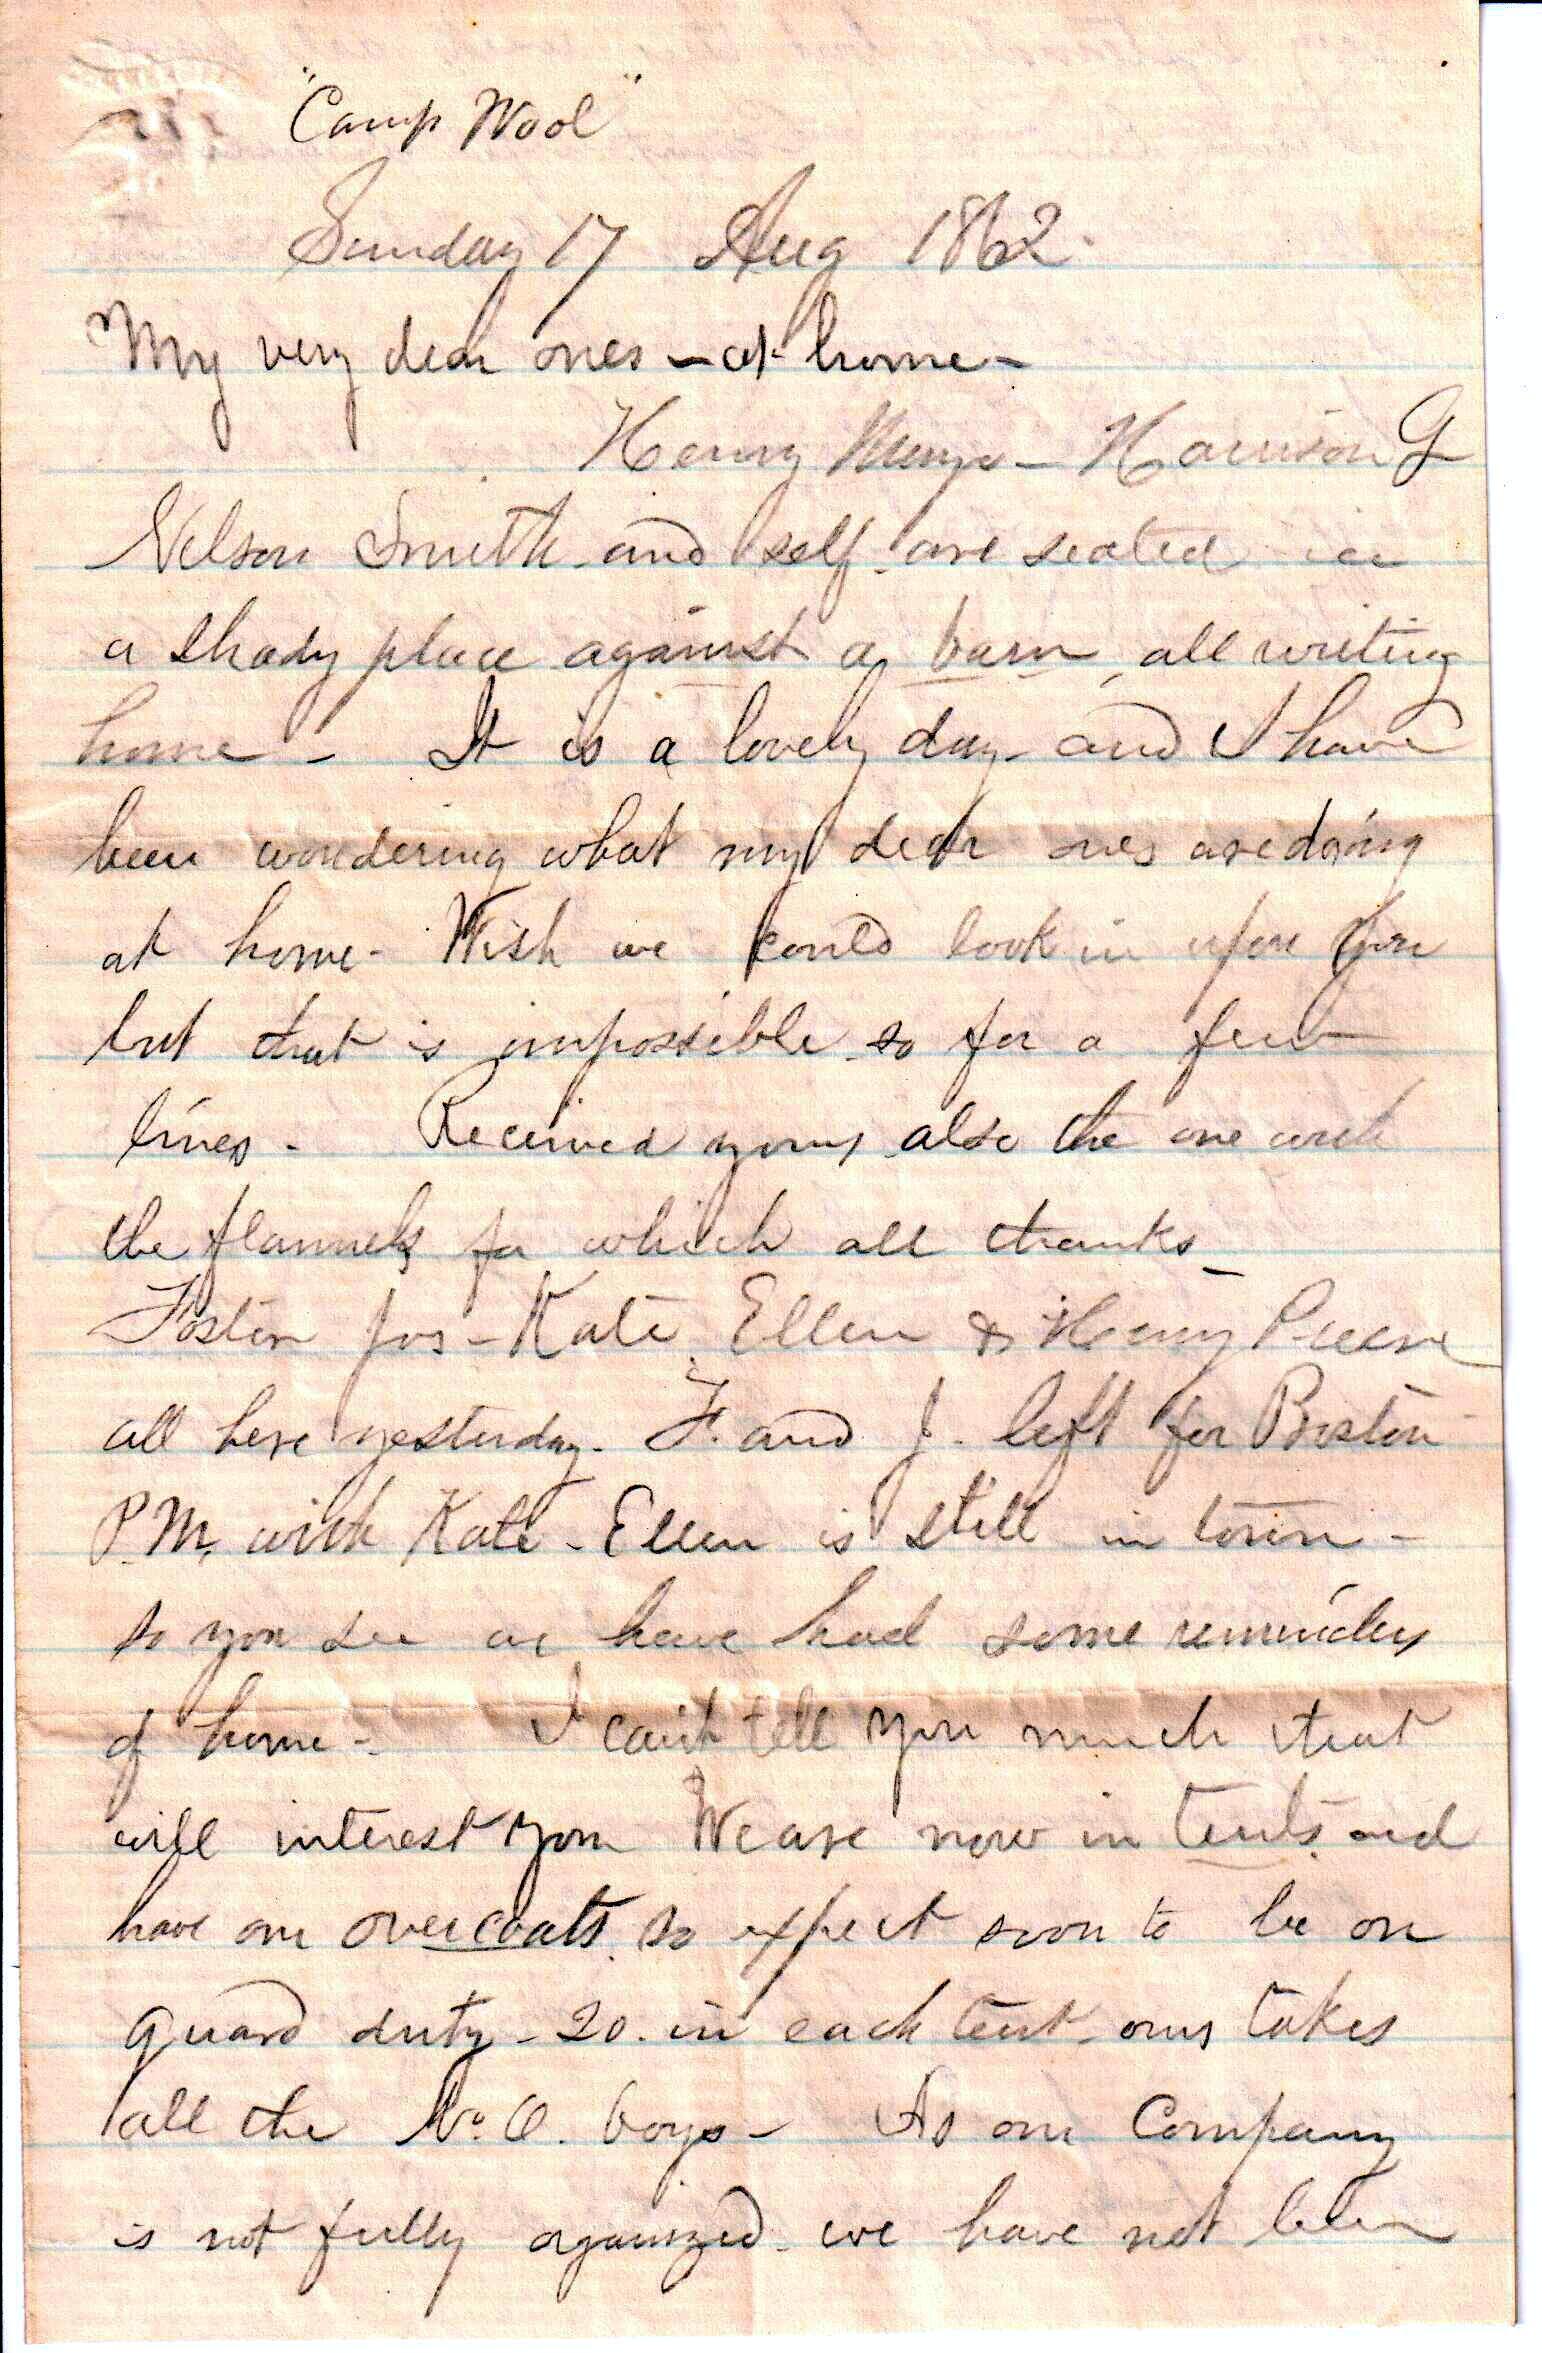 "Camp Wool"
Sunday 17 Aug 1862.
My very dear ones - at home -
Henry Harrison G
Nelson Smith and self - are seated in
a shady place against a barn, all writing
home - It is a lovely day - and I have
been wondering what my dear ones are doing
at home - Wish we could look in upon you
but that is impossible so for a few
lines - Received yours also the one with
the flannels for which all thanks -
Foster Jos - Kate Ellen & Henry
all here yesterday - F. and J. left for Boston
P.M. with Kate - Ellen is still in town -
so you see we have had some reminders
of home - I can't tell you much that
will interest you We are now in tents and
have our overcoats so expect soon to be on
guard duty - 20. in each tent - ours takes
all the No. O. boys - As our Company
is not fully organized - we have not been